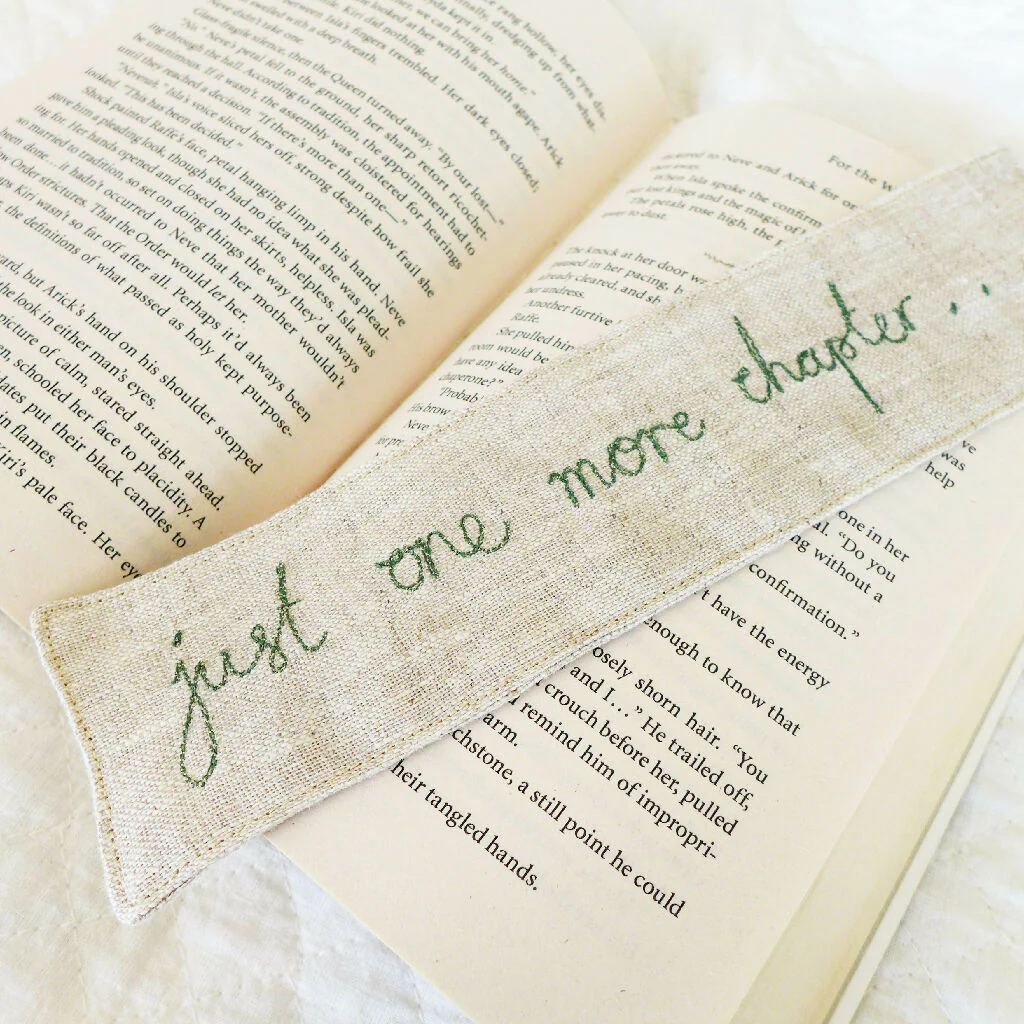 ring hollow, her eyes, dis-
dredging up from what-
looked at her with his mouth agape. Arick
Kiri did nothing.
between Isla's fingers trembled. Her dark eyes closed;
swelled with a deep breath.
Neve didn't take one.
Glass-fragile silence, then the Queen turned away. "By our lost—"
"No." Neve's petal fell to the ground, her sharp retort ricochet-
ing through the hall. According to tradition, the appointment had to
be unanimous. If it wasn't, the assembly was cloistered for hearings
until they reached a decision. "If there's more than one—"
"Nevenah." Isla's voice sliced hers off, strong despite how frail she
looked. "This has been decided."
Shock painted Raffe's face, petal hanging limp in his hand. Neve
gave him a pleading look, though she had no idea what she was plead-
ing for. Her hands opened and closed on her skirts, helpless. Isla was
so married to tradition, so set on doing things the way they'd always
been done... it hadn't occurred to Neve that her mother wouldn't
Order strictures. That the Order would let her.
Kiri wasn't so far off after all. Perhaps it'd always been
the definitions of what passed as holy kept purpose-
but Arick's hand on his shoulder stopped
the look in either man's eyes.
picture of calm, stared straight ahead.
schooled her face to placidity. A
put their black candles to
in flames.
Kiri's pale face. Her
For the
to Neve and Arick for
When Isla spoke the confirm
our lost kings and the magic of
The petals rose high, the
away to dust.
The knock at her door
paused in her pacing,
already cleared, and
her undress.
Another furtive
Raffe.
She pulled him
room would be
have any idea
chaperone?"
"Probab
His brow
Neve
for
ve
was
help
one in her
al. "Do you
ng without a
confirmation."
't have the energy
enough to know that
osely shorn hair. "You
and I..." He trailed off,
crouch before her, pulled
remind him of impropri-
arm.
chstone, a still point he could
heir tangled hands.
just one more chapter...